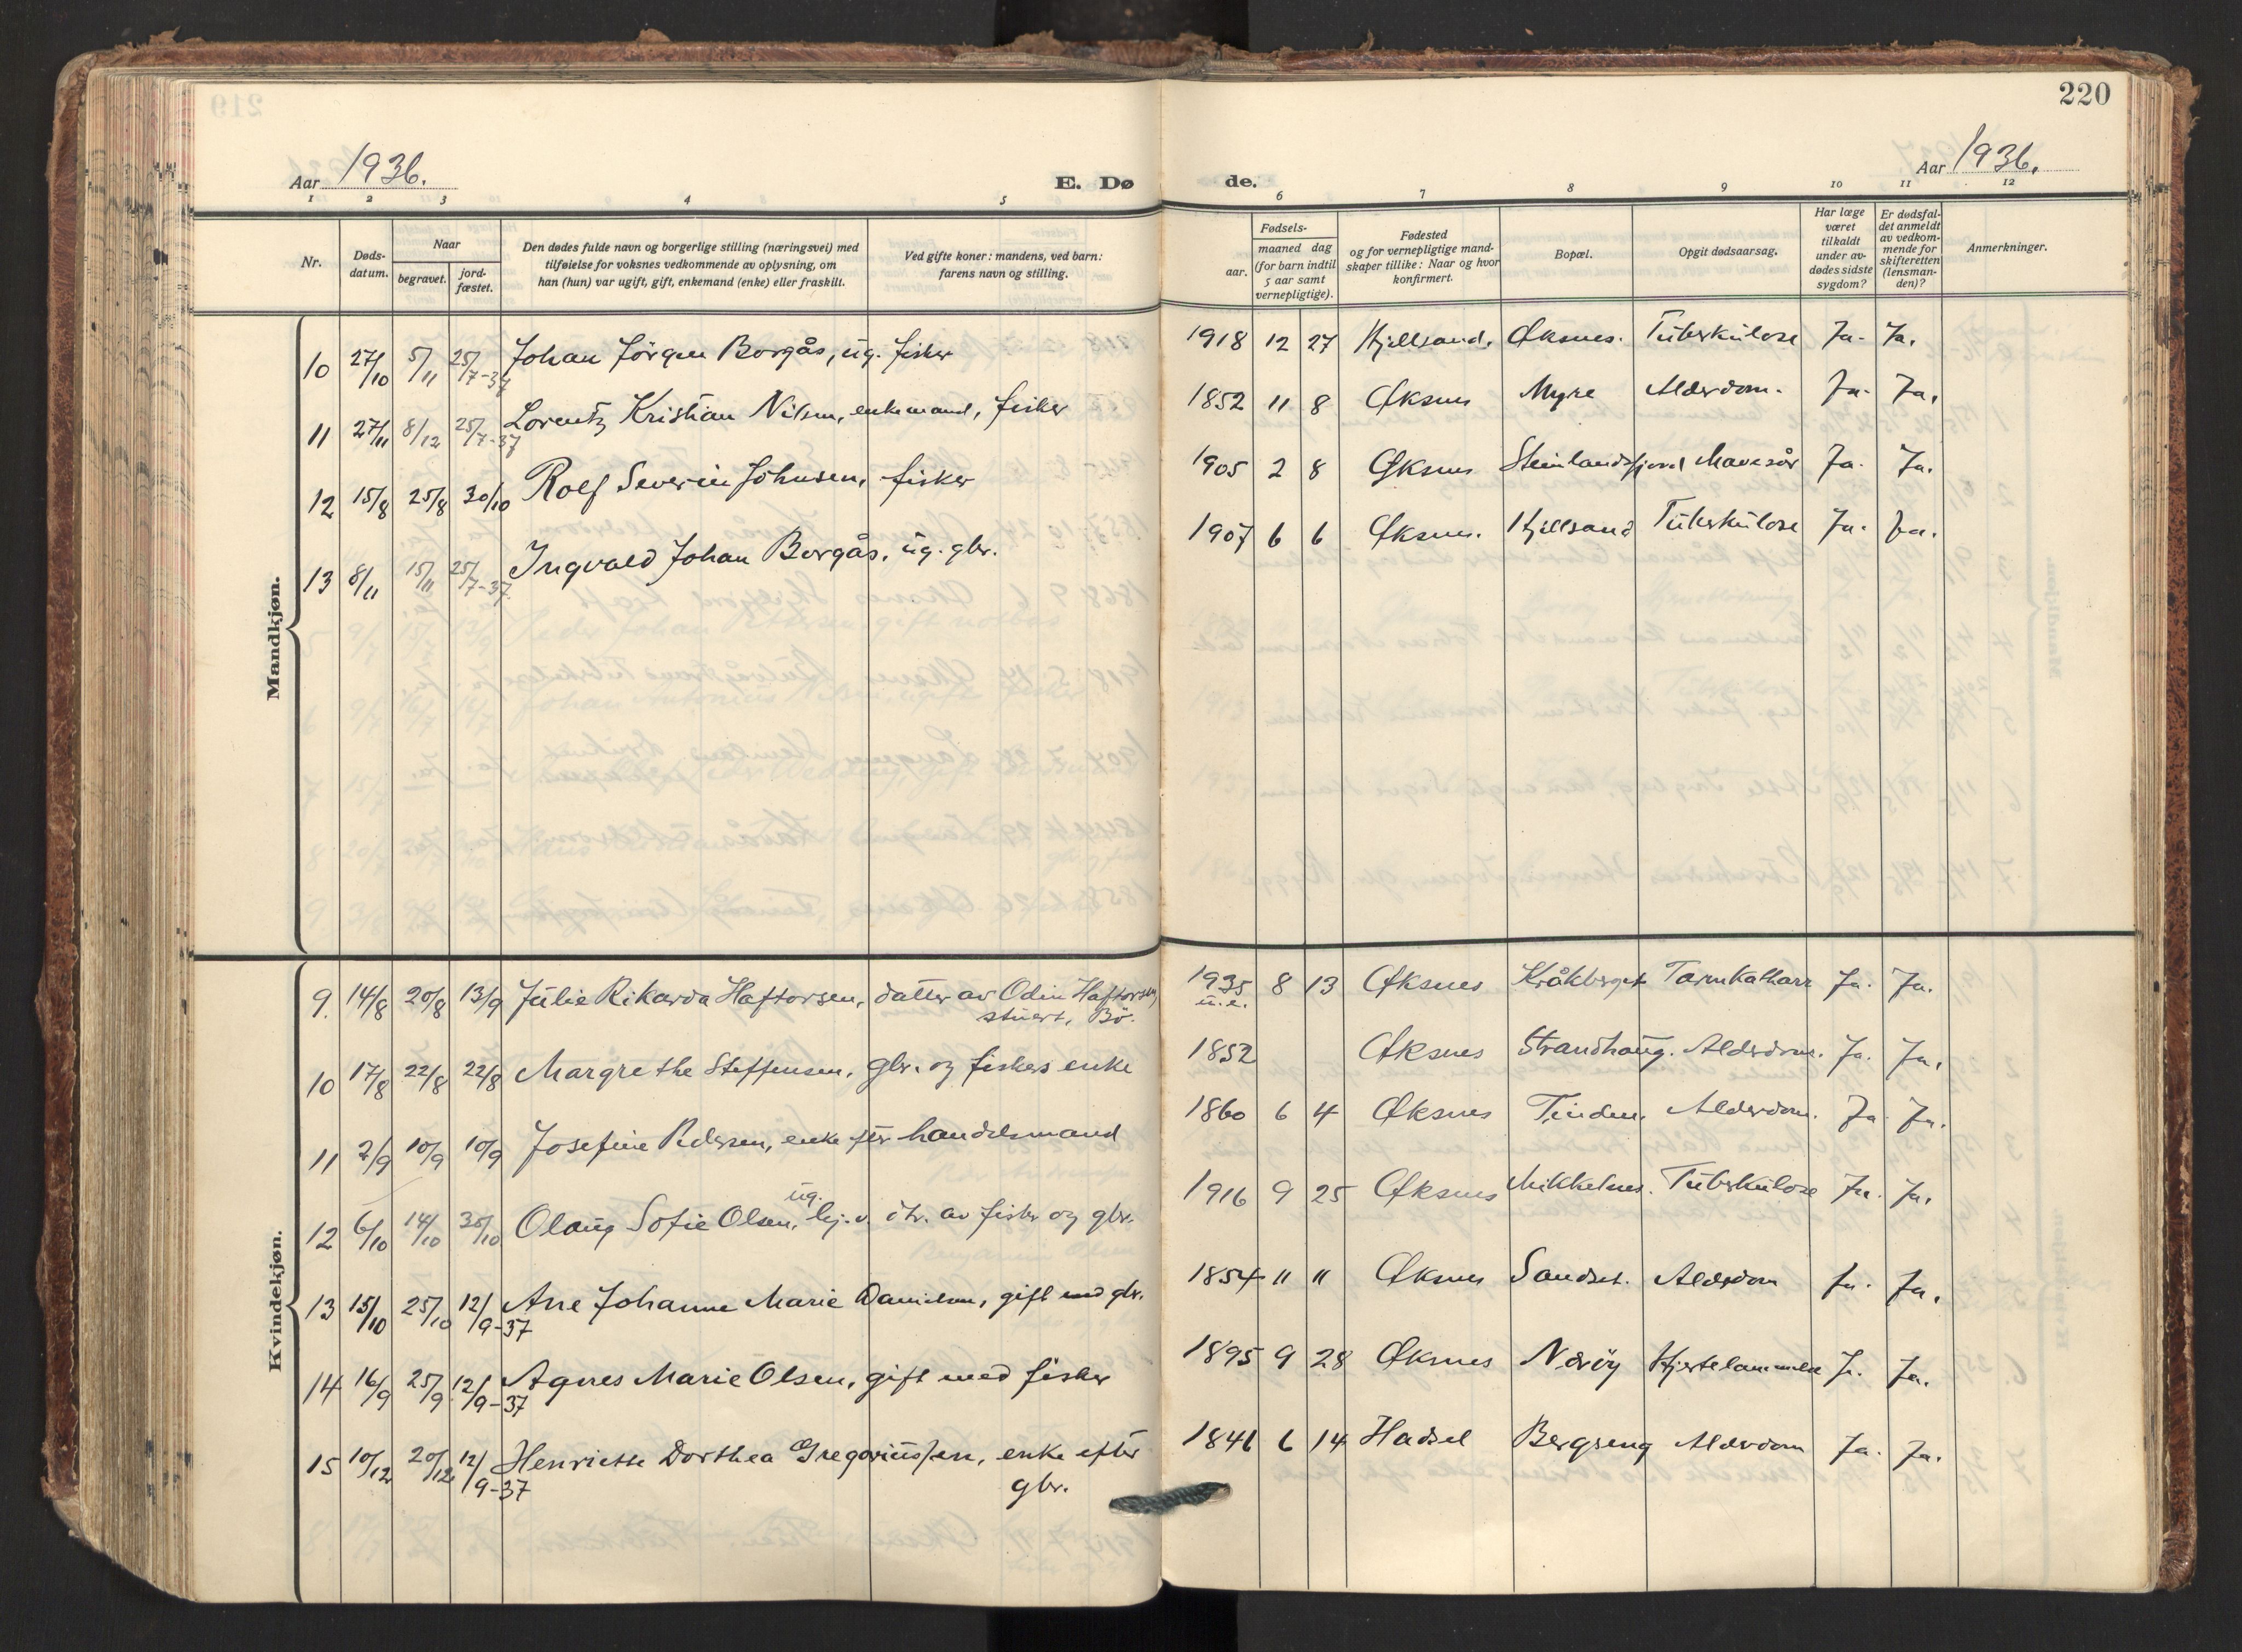 220
Aar 1936.
E. Dø
de.
Aar 1936.
1 2 3 4 5 6 7 8 9 10 11 12
Nr.
Døds-
datum.
Naar
begravet.
jord-
fæstet.
Den dødes fulde navn og borgerlige stilling (næringsvei) med
tilføielse for voksnes vedkommende av oplysning, om
han (hun) var ugift, gift, enkemand (enke) eller fraskilt.
Ved gifte koner: mandens, ved barn:
farens navn og stilling.
Fødsels-
aar.
maaned dag
(for barn indtil
5 aar samt
vernepligtige).
Fødested
og for vernepligtige mand-
skaper tillike: Naar og hvor
konfirmert.
Bopæl.
Opgit dødsaarsag.
Har læge
været
tilkaldt
under av-
dødes sidste
sygdom?
Er dødsfal-
det anmeldt
av vedkom-
mende for
skifteretten
(lensman-
den)?
Anmerkninger.
Mandkjøn.
10 27/10 5/11 25/7-37 Johan Jörgen Borgås, ug. fisker 1918 12 27 Hjellsand. Øksnes. Tuberkulose Ja. Ja.
11 27/11 8/12 25/7-37 Lorentz Kristian Nilsen, enkemand, fisker 1852 11 8 Øksnes Myre Alderdom. Ja. Ja.
12 15/8 25/8 30/10 Rolf Severin Johnsen, fisker 1905 2 8 Øksnes Steinlandsfjord Mavesår Ja. Ja.
13 8/11 15/11 25/7-37 Ingvald Johan Borgås, ug. gbr. 1907 6 6 Øksnes. Hjellsand Tuberkulose Ja. Ja.
Kvindekjøn.
9. 14/8 20/8 13/9 Julie Rikarda Haftorsen, datter av Odin Haftorsen, 1935 8 13 Øksnes Kråkberget Tarmkatharr Ja. Ja.
stuert, Bö. u.e.
10 17/8 22/8 22/8 Margrethe Steffensen, gbr. og fiskers enke 1852 Øksnes Strandhaug. Alderdom. Ja. Ja.
11 2/9 10/9 10/9 Josefine Pedersen, enke efter handelsmand 1860 6 4 Øksnes Tinden Alderdom. Ja Ja.
12 6/10 14/10 30/10 Olaug Sofie Olsen, ug. lej. v. dtr. av fisker og gbr. 1916 9 25 Øksnes Mikkelnes. Tuberkulose Ja. Ja.
13 15/10 25/10 12/9-37 Ane Johanne Marie Danielsen, gift med gbr. 1854 11 11 Øksnes Sandset. Alderdom Ja. Ja.
14 16/9 25/9 12/9-37 Agnes Marie Olsen, gift med fisker 1895 9 28 Øksnes Næröy Hjertelammelse Ja. Ja.
15 10/12 20/12 12/9-37 Henriette Dorthea Gregoriussen, enke efter 1846 6 14 Hadsel Bergseng Alderdom Ja. Ja.
gbr.